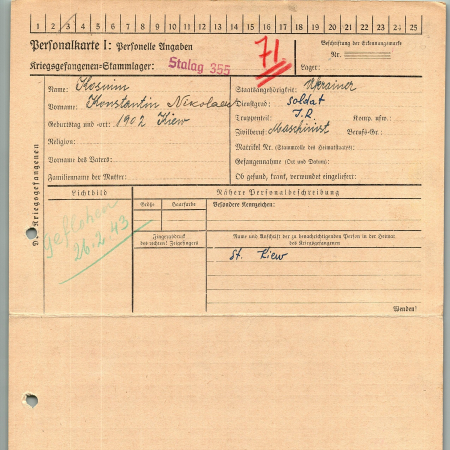 1 2 3 4 5 6 7 8 9 10 11 12 13 14 15 16 17 18 19 20 21 22 23 24 25
Personalkarte I: Personelle Angaben
Kriegsgefangenen-Stammlager: Stalag 355
71
Beschriftung der Erkennungsmarke
Nr.
Lager:
Name: Kosmin
Vorname: Konstantin Nikolaew
Geburtstag und -ort: 1902 Kiew
Religion:
Vorname des Vaters:
Familienname der Mutter:
Staatsangehörigkeit: Ukrainer
Dienstgrad: Soldat
Truppenteil: I.R. Komp. usw.:
Zivilberuf: Maschinist Berufs-Gr.:
Matrikel Nr. (Stammrolle des Heimatstaates):
Gefangennahme (Ort und Datum):
Ob gesund, krank, verwundet eingeliefert:
D. Kriegsgefangenen
Lichtbild
Geflohen
26.2.43
Nähere Personalbeschreibung
Größe
Haarfarbe
Besondere Kennzeichen:
Fingerabdruck
des rechten! Zeigefingers
Name und Anschrift der zu benachrichtigenden Person in der Heimat
des Kriegsgefangenen
St. Kiew
Wenden!